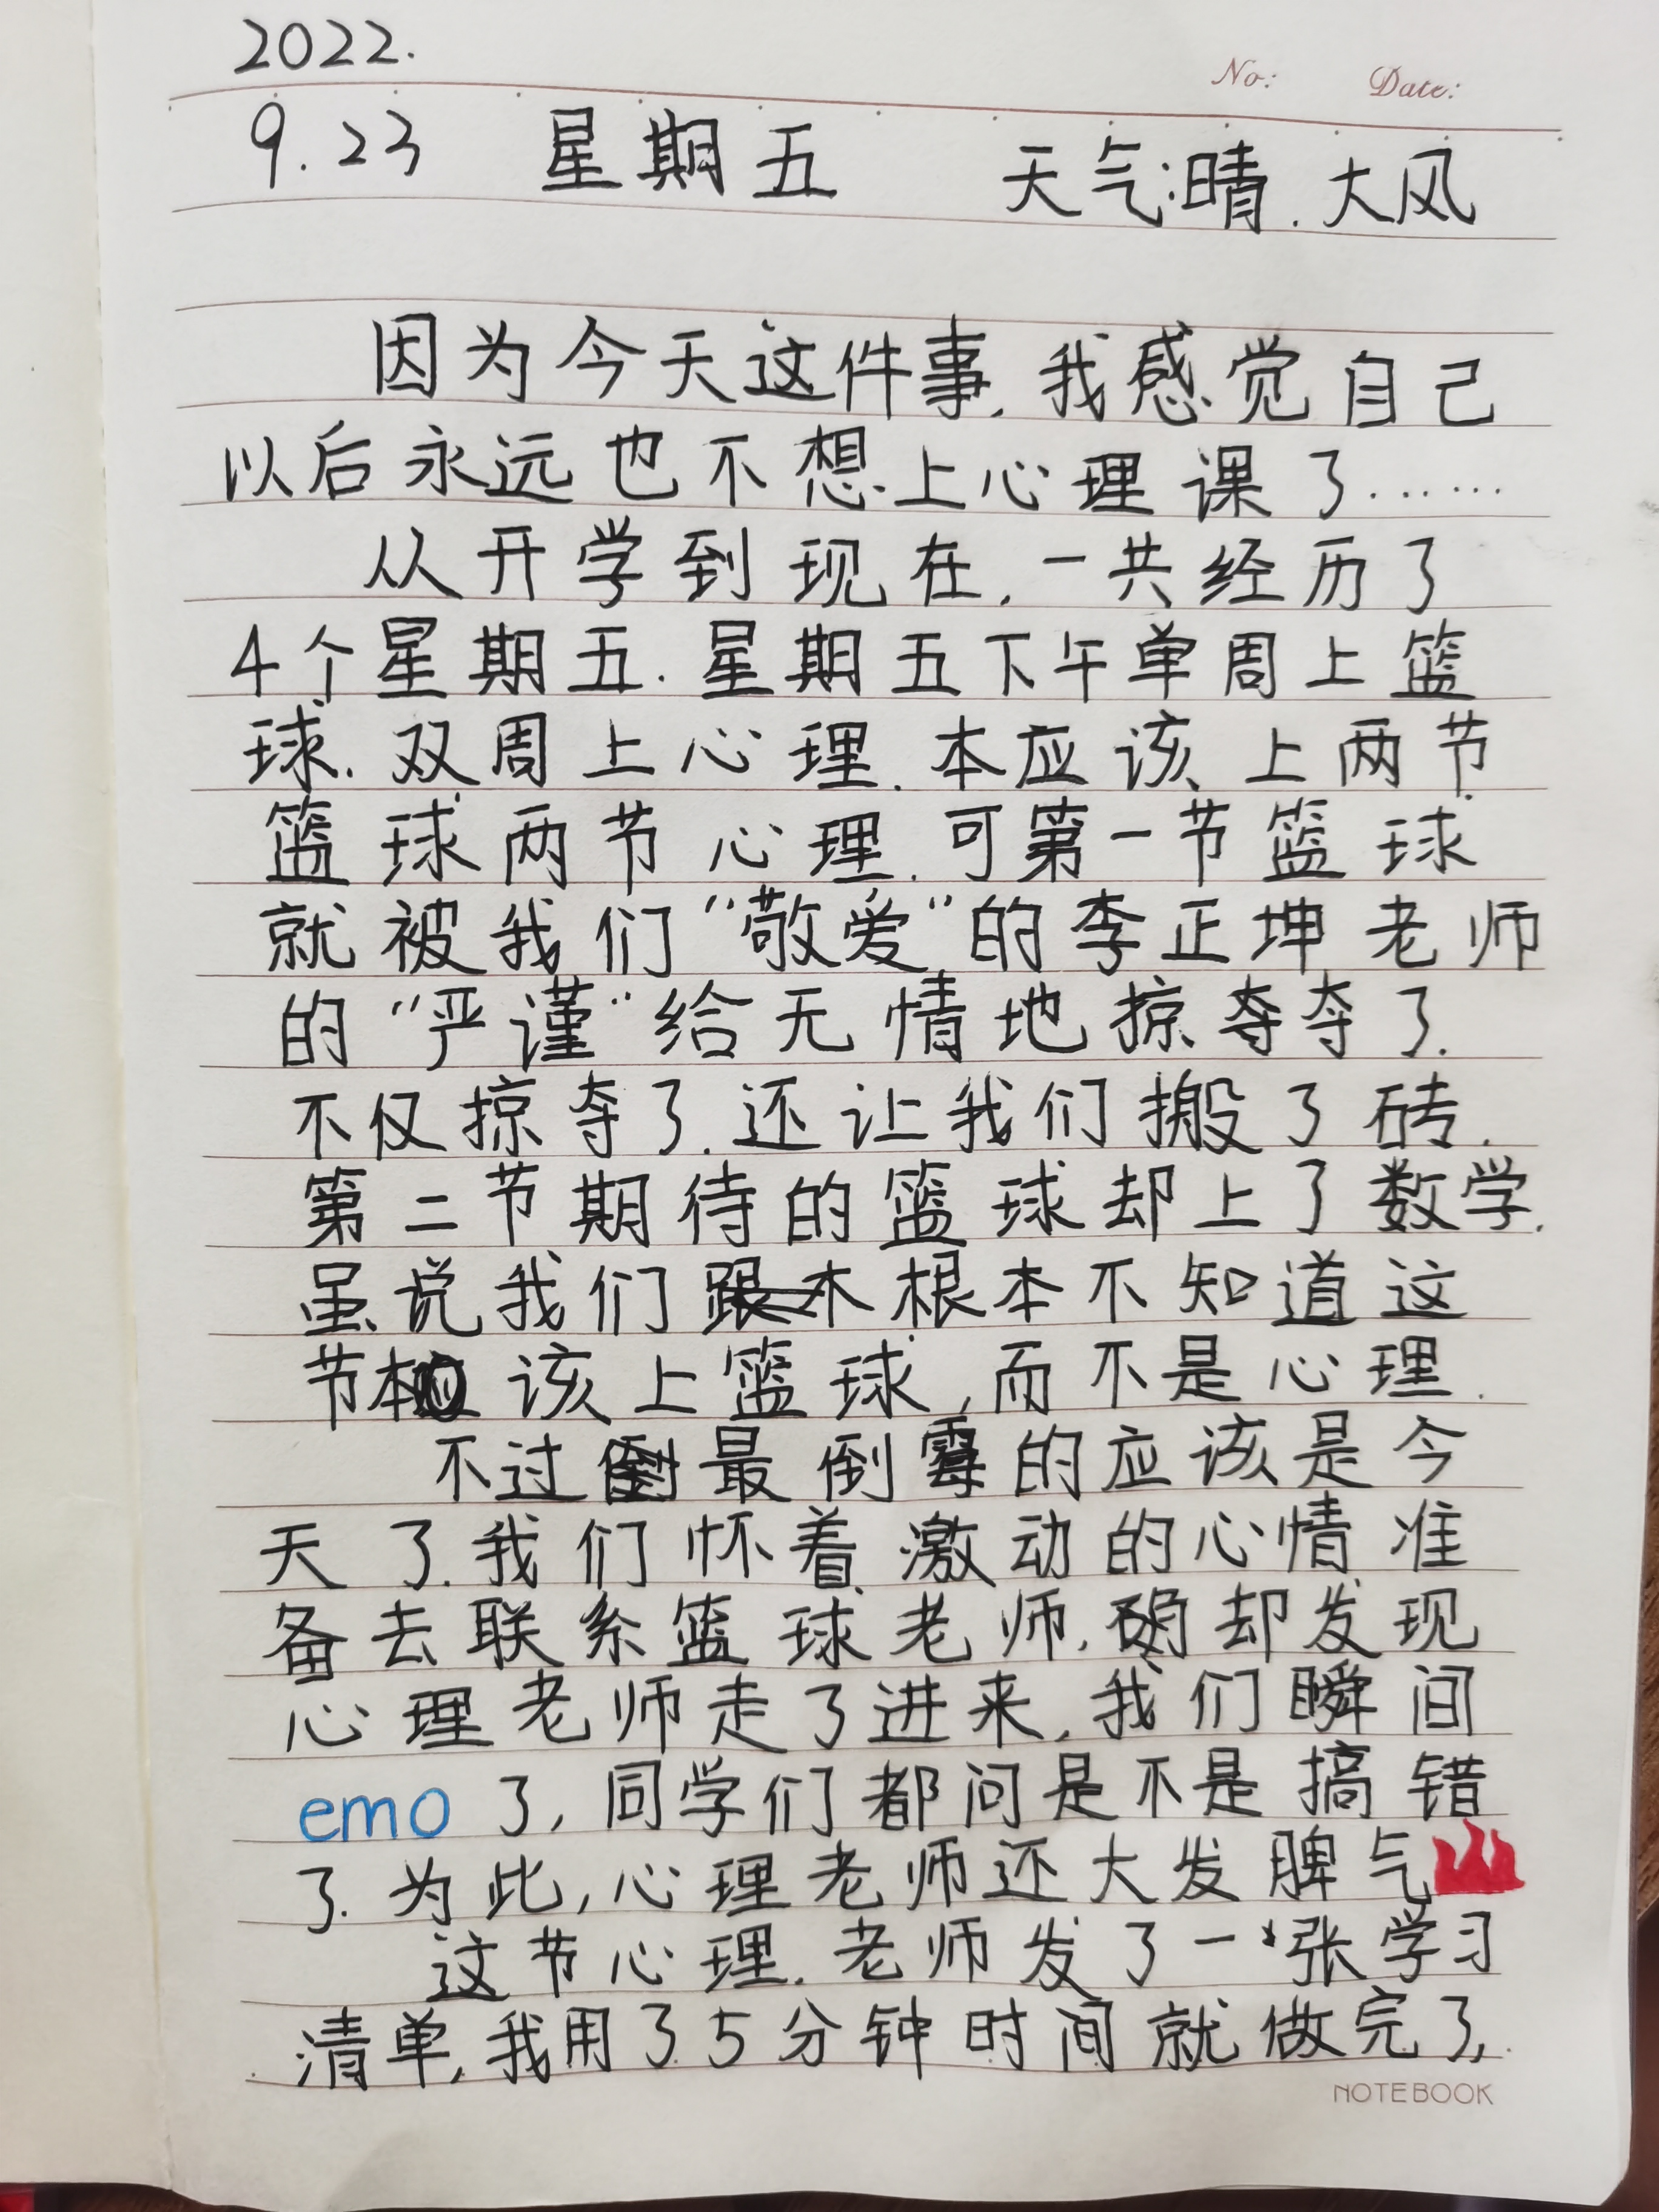 2022.
No: Date:
9.23 星期五 天气:晴.大风
因为今天这件事.我感觉自己
以后永远也不想上心理课了……
从开学到现在.一共经历了
4个星期五.星期五下午单周上篮
球.双周上心理.本应该上两节
篮球两节心理.可第一节篮球
就被我们“敬爱”的李正坤老师
的“严谨”给无情地掠夺夺了.
不仅掠夺了.还让我们搬了砖.
第二节期待的篮球却上了数学.
虽说我们根本不知道这
节本应该上篮球,而不是心理.
不过最倒霉的应该是今
天了.我们怀着激动的心情准
备去联系篮球老师.却发现
心理老师走了进来.我们瞬间
emo了,同学们都问是不是搞错
了.为此,心理老师还大发脾气
这节心理.老师发了一张学习
清单,我用了5分钟时间就做完了,
NOTEBOOK